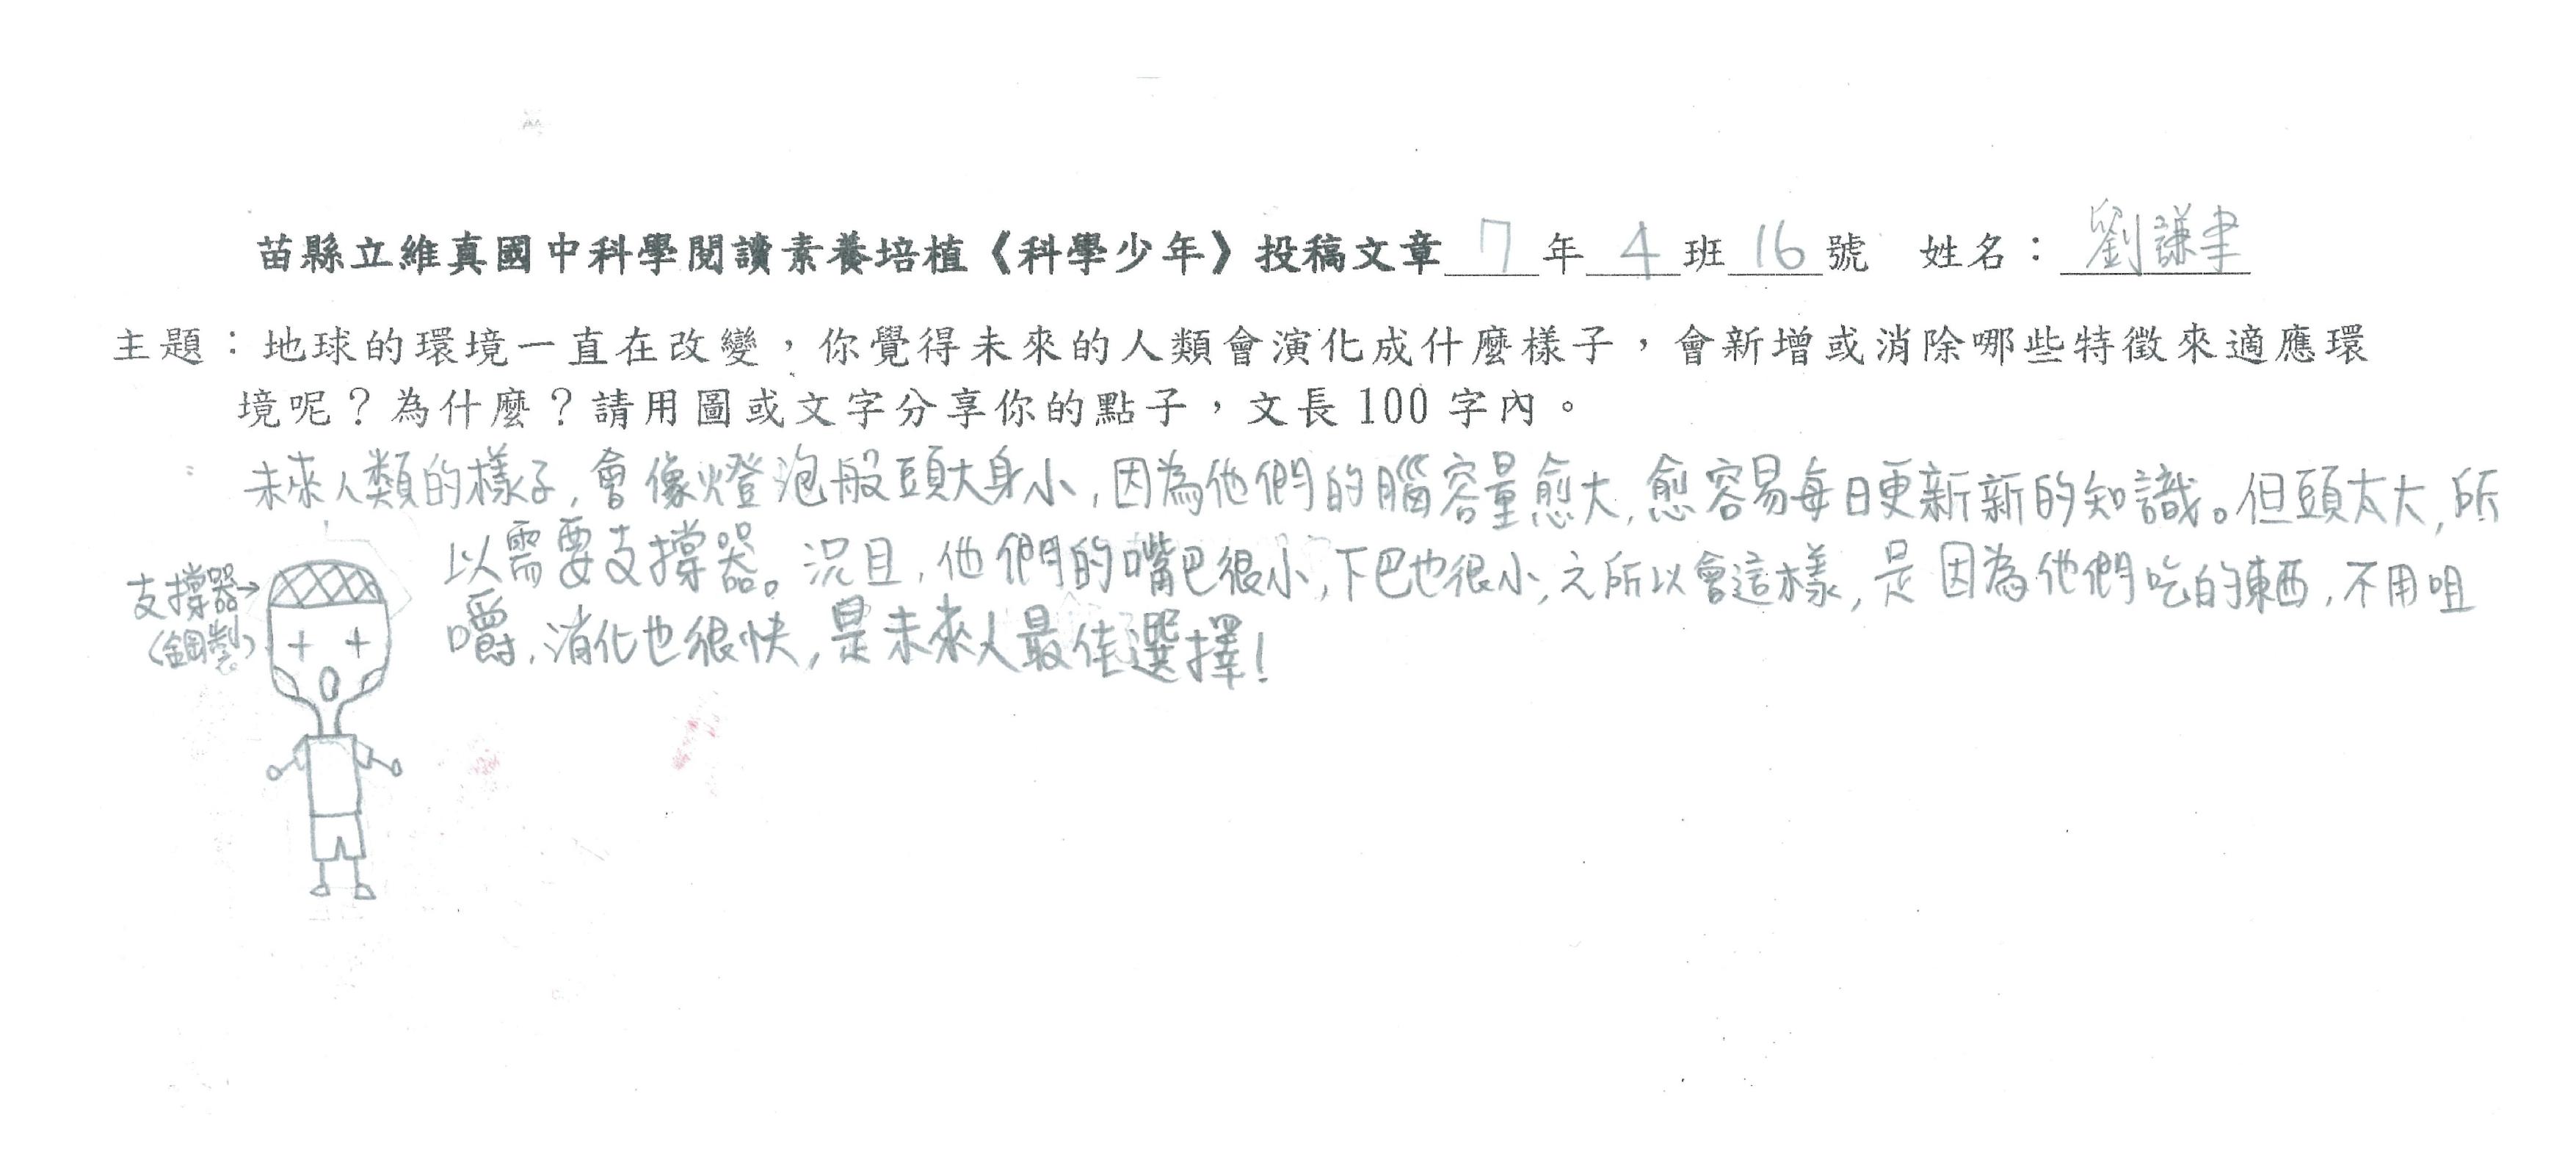 苗縣立維真國中科學閱讀素養培植《科學少年》投稿文章 7 年 4 班 16 號 姓名：劉謙聿
主題：地球的環境一直在改變，你覺得未來的人類會演化成什麼樣子，會新增或消除哪些特徵來適應環
境呢？為什麼？請用圖或文字分享你的點子，文長100字內。
未來人類的樣子，會像燈泡般頭大身小，因為他們的腦容量愈大，愈容易每日更新新的知識。但頭太大，所
以需要支撐器。況且，他們的嘴巴很小，下巴也很小，之所以會這樣，是因為他們吃的東西，不用咀
嚼，消化也很快，是未來人最佳選擇！
支撐器→
(鋼製)